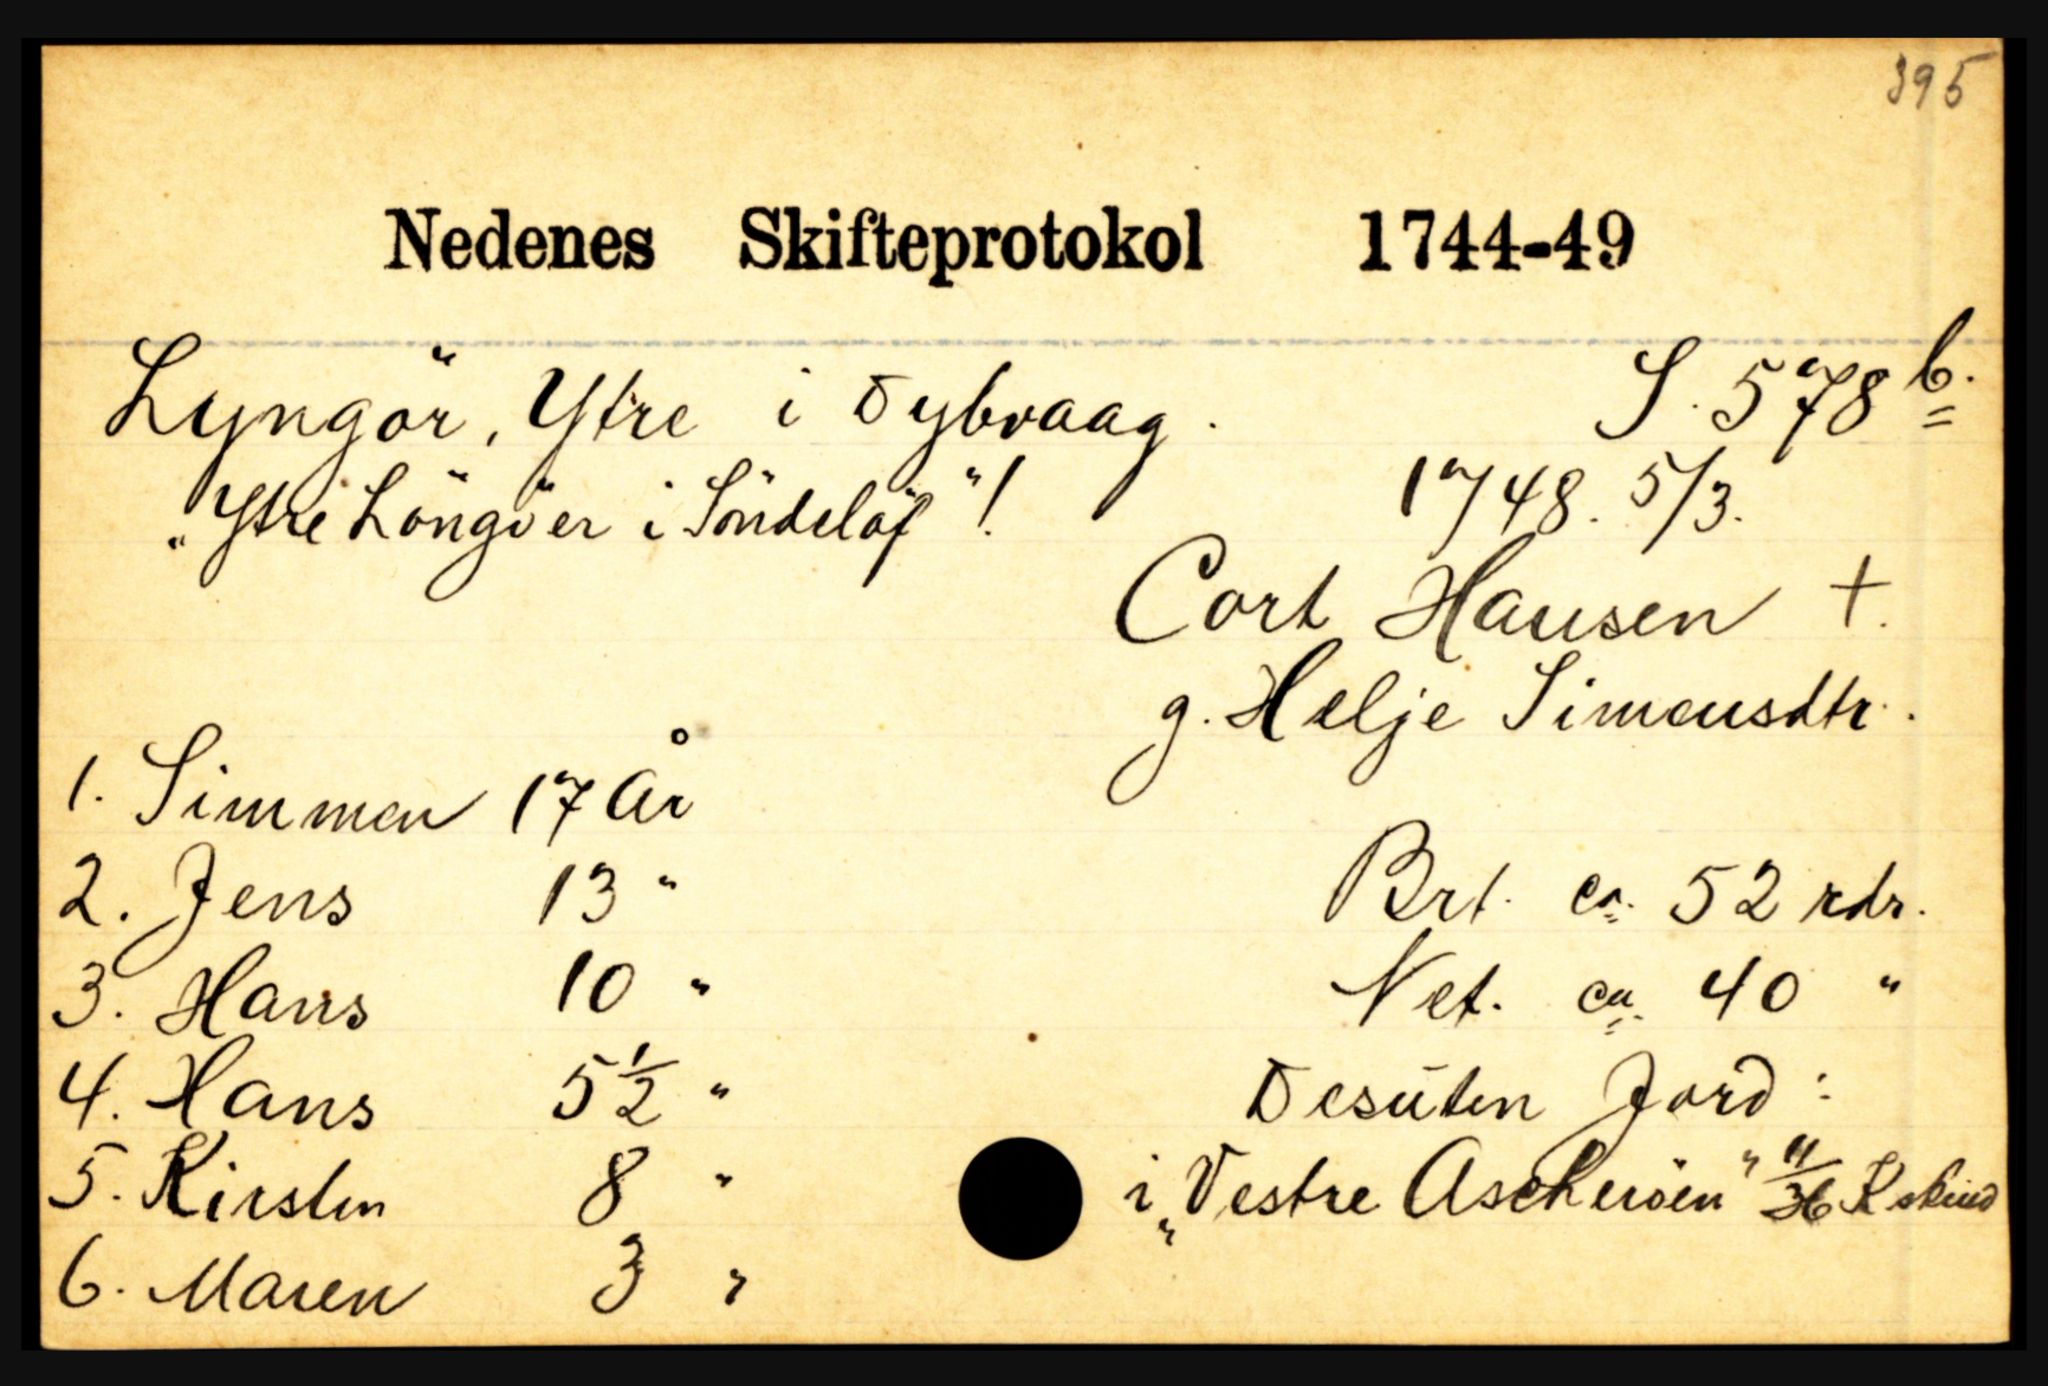 395
Nedenes Skifteprotokol 1744-49
Lyngör, Ytre i Dybvaag. S. 578 b.
"Ytre Löngöer i Söndelöf"! 1748. 5/3.
Cort Hansen +.
g. Helje Simensdtr.
1. Simmen 17 År
2. Jens 13 " Brt. ca. 52 rdr.
3. Hans 10 " Net. ca. 40 "
4. Hans 5 1/2 " Desuten Jord:
5. Kirsten 8 " i "Vestre Ascheröen" 11/36 K skind
6. Maren 3 "